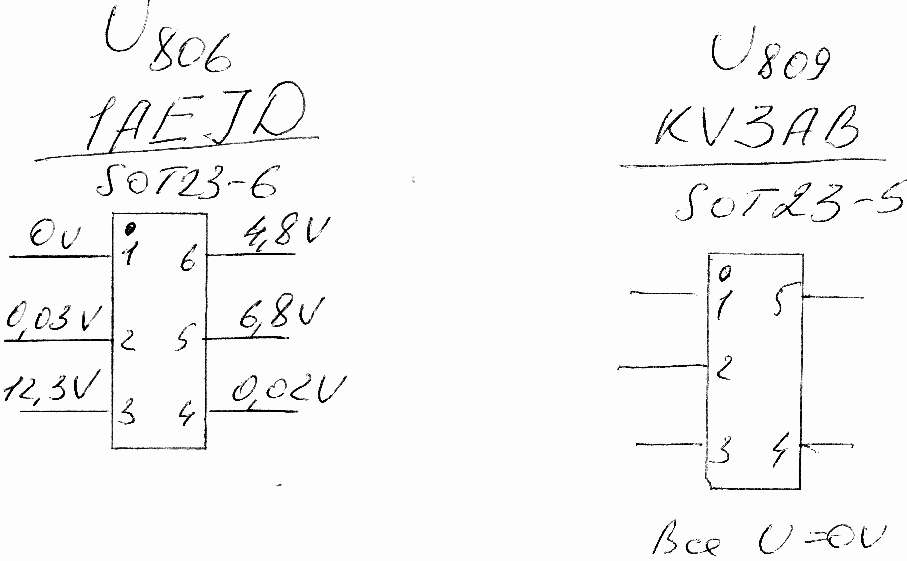 U806
1AEJD
SOT23-6
0V 1 6 4,8V
0,03V 2 5 6,8V
12,3V 3 4 0,02V
U809
KV3AB
SOT23-5
1 5
2
3 4
Все U=0V